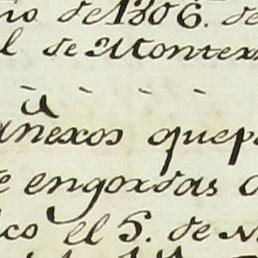 de 1806. de
l de Monter
anexos que
e engordas
co el 5. de